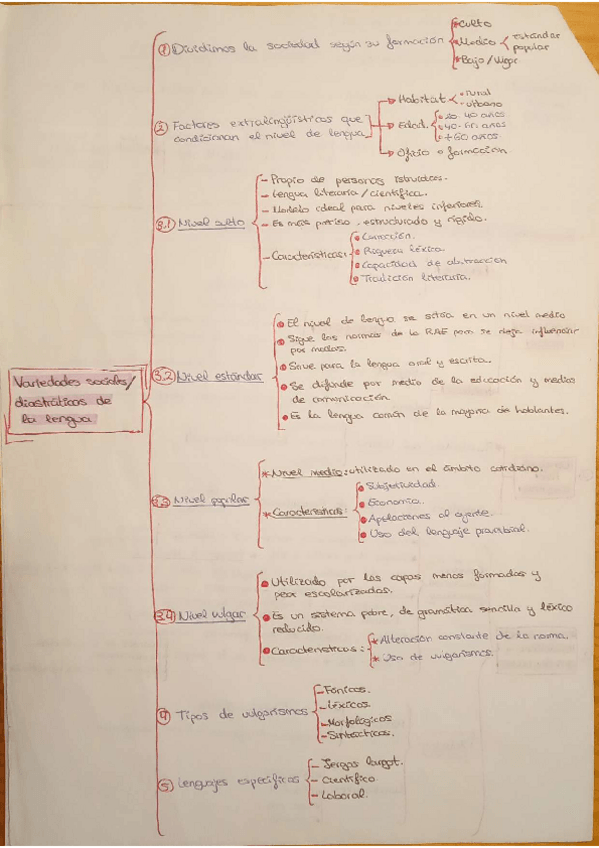 Variedades sociales/
diastráticas de
la lengua
① Dividimos la sociedad según su formación
* Culto
* Medio
estándar
popular
* Bajo/Vulgar
② Factores extralingüísticos que
condicionan el nivel de lengua
Habitat
rural
urbano
Edad
20-40 años
40-60 años
+60 años
Oficio o formación
3.1) Nivel culto
- Propio de personas instruidas.
- Lengua literaria/científica.
- Modelo ideal para niveles inferiores.
- Es más preciso, estructurado y rígido.
- Características:
Corrección.
Riqueza léxica.
Capacidad de abstracción
Tradición literaria.
3.2) Nivel estándar
El nivel de lengua se sitúa en un nivel medio
Sigue las normas de la RAE pero se deja influenciar
por modas.
Sirve para la lengua oral y escrita.
Se difunde por medio de la educación y medios
de comunicación.
Es la lengua común de la mayoría de hablantes.
3.3 Nivel popular
* Nivel medio: utilizado en el ámbito cotidiano.
* Características:
Subjetividad.
Economía.
Apelaciones al oyente.
Uso del lenguaje proverbial.
3.4) Nivel vulgar
Utilizado por las capas menos formadas y
peor escolarizadas.
Es un sistema pobre, de gramática sencilla y léxico
reducido.
Características:
* Alteración constante de la norma.
* Uso de vulgarismos.
④ Tipos de vulgarismos
- Fónicos.
- Léxicos
- Morfológicos
- Sintácticos.
⑤ Lenguajes específicos
- Jergas
- Científico
- Laboral.